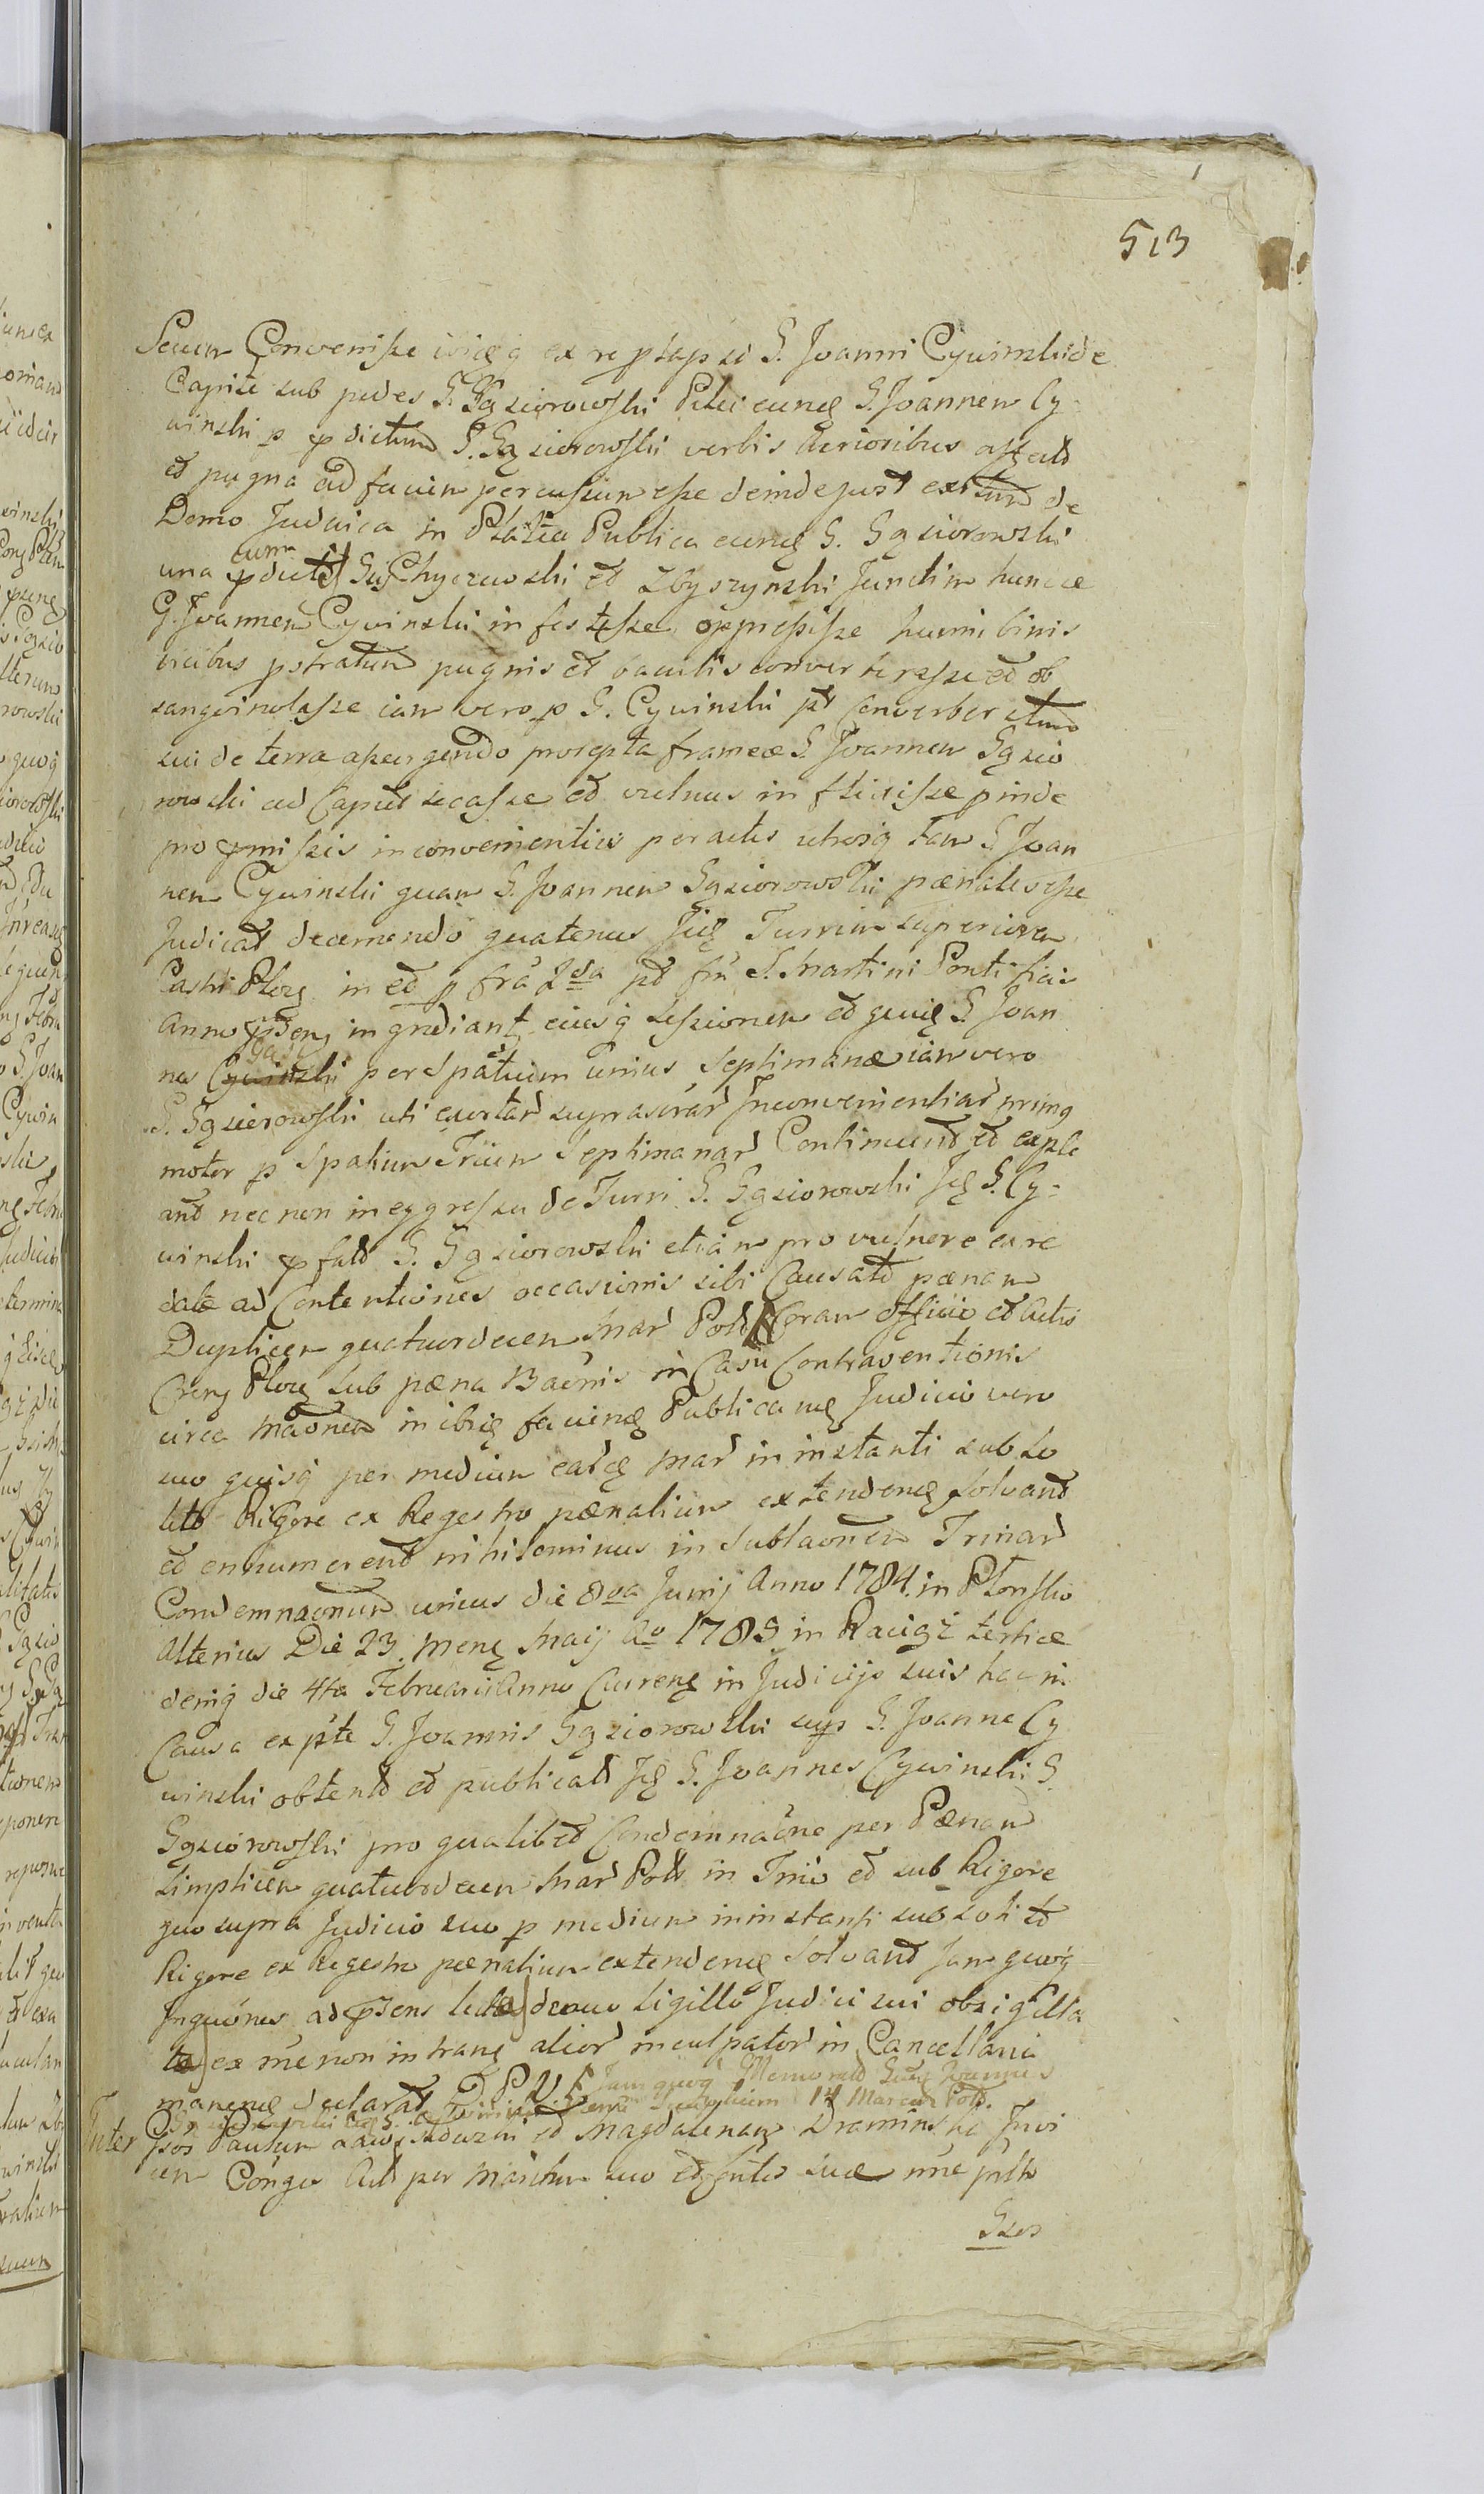 513
Secum Convenisse ibiqȝ ex re plapsi G. Joanni Cywinski de
Capite sub pedes G. Gąsiorowski Pilei eunqȝ G. Joannem Cy
winski p prdictum G. Gąsiorowski verbis acrioribus affectum
et pugna ad faciem percussum esse deinde post exitum de
Domo Judaica in Platea Publica eunqȝ G. Gąsiorowski
una cum pdictis Gis Chyczewski et Zbyszynski junctim hunce
G. Joannem Cywinski infestasse oppressisse humi binis
vicibus pstratum pugnis et baculis converberasse et ob
sangvinolasse iam vero p G. Cywinski pt Converberatum
sui de terra assurgendo prorepta framea G. Joannem Gąsio
rowski ad Caput secasse et vulnus inflixisse pinde
pro pmissis inconvenientiis peractis utrosq tam G. Joan
nem Cywinski quam G. Joannem Gąsiorowski pænales esse
Judicat decernendo quatenus Jidȝ Turrim superiorem
Castri Ploc. in et p fra 2da pt fm S. Martini Pontificis
Anno psenȝ ingrediant eiusq sessionem et quidȝ G. Joan
nes Cywinski per Spatium unius Septimanæ iam vero
G. Gąsiorowski uti exortar suprascrar Inconvenientiar primg
motor p Spatium Trium Septimanar Continuent et exple
ant nec non in eggressu de Turri G. Gąsiorowski Jdȝ G. Cy-
winski pfato G. Gąsiorowski etiam pro vulnere ex re
datæ ad Contentiones occasionis sibi Causato pænam
Duplicem quatuordecem Mar Pold Coram officio et Actis
Crens Ploc. sub pæna Bannis in Casu Contraventionis
circa maonem in ibiqȝ faciendȝ Publicanȝ Judicio vero
suo quisq per medium earuȝ mar in instanti sub so
lito Rigore ex Regestro pænalium extendenȝ solvant
et ennumerent nihilominus in sublaonem Trinar
Condemnaonum unius die 8va Junij Anno 1784. in Plonsko
Alterius Die 23. mens Maij Ao 1785 in Raciąż tertiæ
deniq die 4ta Februarii Anno Currenȝ in Judicijs suis hac in
Causa ex pte G. Joannis Gąsiorowski sup G. Joanne Cy
winski obtento et publicato Jdȝ G. Joannes Cywinski G.
Gąsiorowski pro qualibet Condemnaone per Pænam
simplicem quatuordecem Mar Pold in Trio et sub Rigore
quo supra Judicio suo p medium in instanti sub solito
Rigore ex Regestro pænalium extendenȝ solvant Jam quoq
Inquones ad psens lectæ denuo sigillo Judicii sui obsigilla
tæ ex me non intranȝ alior inculpator in Cancellaria
manenȝ declarat D. P. V. Jam quoq Memorato Gnȝ Joannes
14 Marcar Pold.
Inter Gsos Paulum et Magdalenam Dramińska Invi
cem Conges Act per Maritum suo et sue nne
Gsos